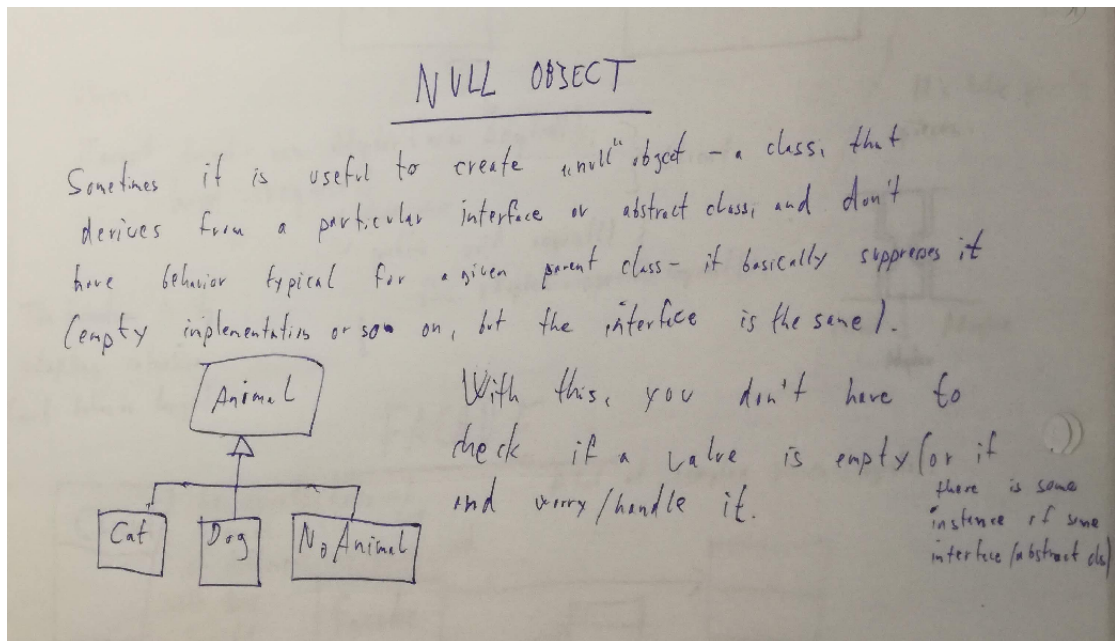 NULL OBJECT
Sometimes it is useful to create „null" object - a class, that
derives from a particular interface or abstract class, and don't
have behavior typical for a given parent class - it basically suppresses it
(empty implementation or so on, but the interface is the same).
Animal
Cat
Dog
No Animal
With this, you don't have to
check if a value is empty (or if
there is some
instance of some
interface/abstract cls)
and worry/handle it.